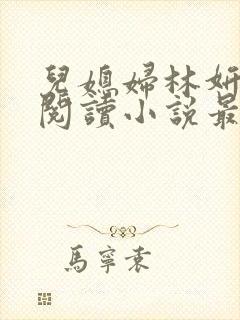 兒媳婦林妍
閱讀小説最
馬寧袁